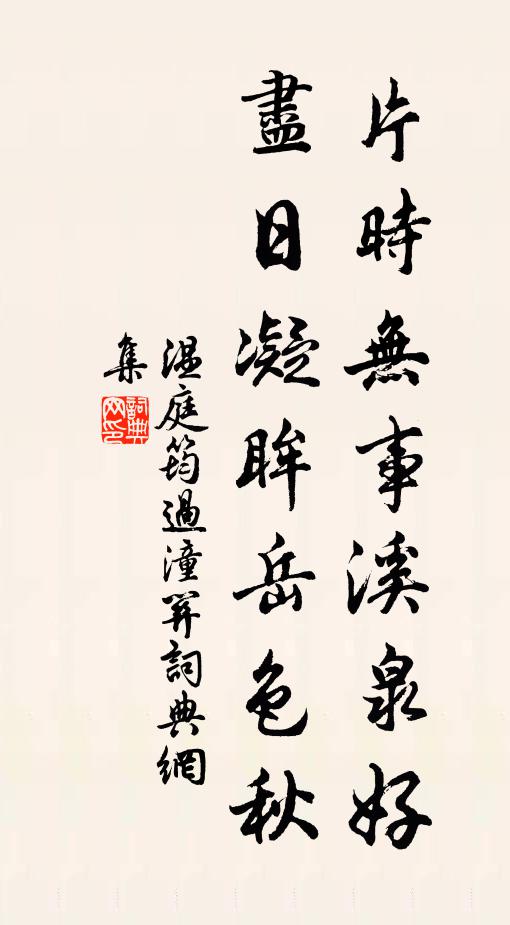 片時無事溪泉好
盡日凝眸岳色秋
温庭筠過潼關詞典網
集
詞典
网印